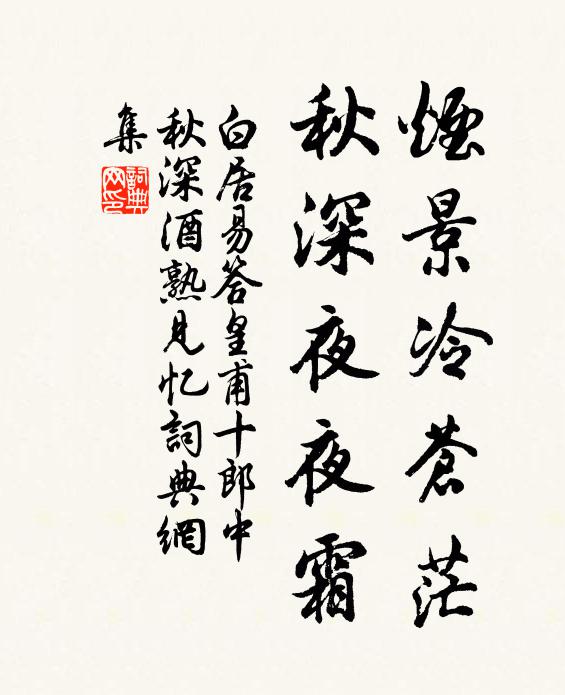 煙景冷蒼茫
秋深夜夜霜
白居易答皇甫十郎中
秋深酒熟見忆詞典網
集
詞典
网印